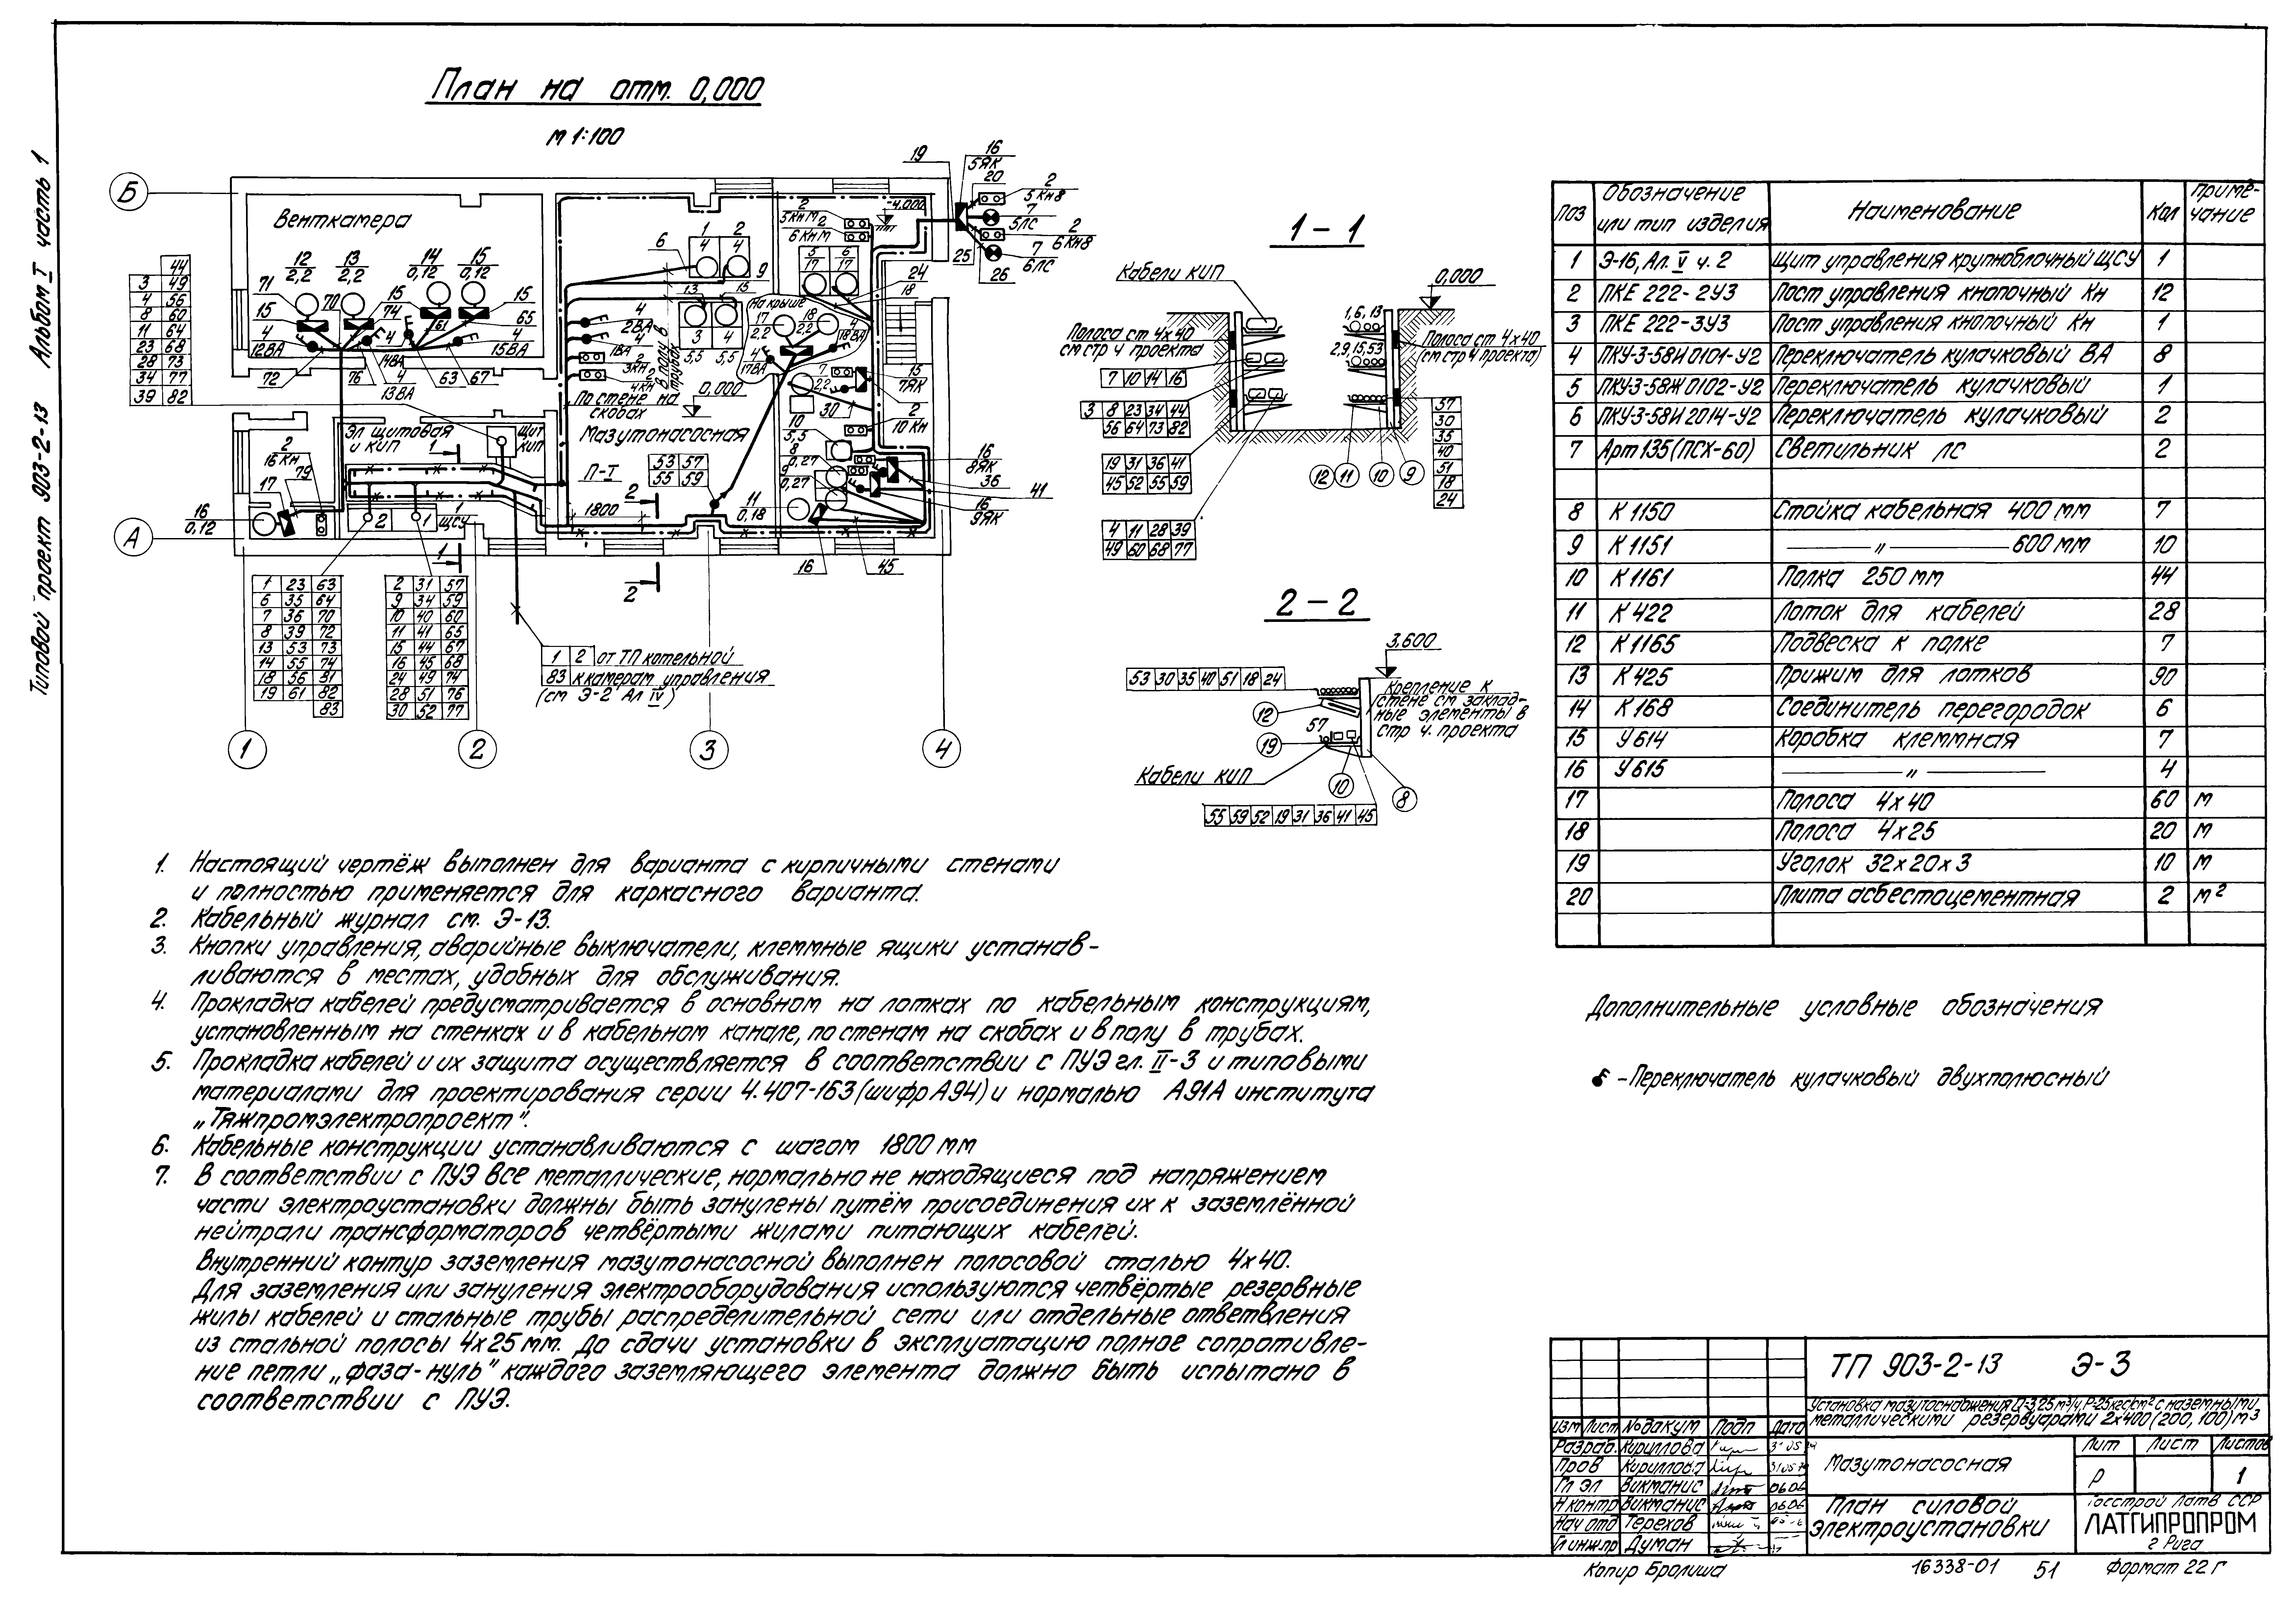 Типовой проект 903-2-13 Альбом I часть 1
План на отм. 0,000
М 1:100
Б
А
1
2
3
4
Венткамера
12 2,2
13 2,2
14 0,12
15 0,12
71
70
15
74
15
61
15
65
4 12ВА
4 14ВА
4 13ВА
4 15ВА
72
76
63
67
44
3 49
4 56
8 60
11 64
23 68
28 73
34 77
39 82
Эл щитовая
и КИП
Щит
КИП
2
16 Кн
79
17
16
0,12
1
ЩСУ
Мазутонасосная
П-I
53 57
55 59
1800
По стене на
скобах
В полу в
трубах
0,000
-4.000
На крыше
4 2ВА
4 1ВА
2 3КН
2 4КН
2 5КН М
2 6КН М
17 2,2
18 2,2
4 17ВА
4 18ВА
15 7ЯК
2 10 Кн
16 8ЯК
16 9ЯК
10 5,5
8 0,27
9 0,27
11 0,18
30
36
41
45
16
24
18
19
16 5ЯК
20
2 5 Кн8
7 5ЛС
2 6 Кн8
7 6ЛС
25
26
1 23 63
6 35 64
7 36 70
8 39 72
13 53 73
14 55 74
18 56 31
19 61 82
83
2 31 57
9 34 59
10 40 60
11 41 65
15 44 67
16 45 68
24 49 74
28 51 76
30 52 77
1 2 от ТП котельной
83 к камерам управления
(см Э-2 Ал IV)
1-1
Кабели КИП
0,000
Полоса ст 4х40
см стр ч проекта
Полоса ст 4х40
(см стр ч проекта)
1, 6, 13
2,9,15,53
7 10 14 16
3 8 23 34 44
56 64 73 82
19 31 36 41
45 52 55 59
4 11 28 39
49 60 68 77
57
30
35
40
51
18
24
12 11 10 9
2-2
3.600
53 30 35 40 51 18 24
Крепление к
стене см заклад-
ные элементы в
стр ч. проекта
12
57
19
Кабели КИП
10
8
55 59 52 19 31 36 41 45
Поз Обозначение или тип изделия Наименование Кол Приме-чание
1 Э-16, Ал. V ч. 2 Щит управления крупноблочный ЩСУ 1
2 ПКЕ 222-2У3 Пост управления кнопочный Кн 12
3 ПКЕ 222-3У3 Пост управления кнопочный Кн 1
4 ПКУ-3-58И 0101-У2 Переключатель кулачковый ВА 8
5 ПКУ-3-58Ж 0102-У2 Переключатель кулачковый 1
6 ПКУ-3-58И 2014-У2 Переключатель кулачковый 2
7 Арт 135 (ПСХ-60) Светильник ЛС 2
8 К 1150 Стойка кабельная 400 мм 7
9 К 1151 —„— 600 мм 10
10 К 1161 Полка 250 мм 44
11 К 422 Лоток для кабелей 28
12 К 1165 Подвеска к полке 7
13 К 425 Прижим для лотков 90
14 К 168 Соединитель перегородок 6
15 У 614 Коробка клеммная 7
16 У 615 —„— 4
17 Полоса 4х40 60 м
18 Полоса 4х25 20 м
19 Уголок 32х20х3 10 м
20 Плита асбестоцементная 2 м²
Дополнительные условные обозначения
– Переключатель кулачковый двухполюсный
1. Настоящий чертёж выполнен для варианта с кирпичными стенами
и полностью применяется для каркасного варианта.
2. Кабельный журнал см. Э-13.
3. Кнопки управления, аварийные выключатели, клеммные ящики устанав-
ливаются в местах, удобных для обслуживания.
4. Прокладка кабелей предусматривается в основном на лотках по кабельным конструкциям,
установленным на стенках и в кабельном канале, по стенам на скобах и в полу в трубах.
5. Прокладка кабелей и их защита осуществляется в соответствии с ПУЭ гл. II-3 и типовыми
материалами для проектирования серии 4.407-163 (шифр А94) и нормалью А91А института
„Тяжпромэлектропроект".
6. Кабельные конструкции устанавливаются с шагом 1800 мм
7. В соответствии с ПУЭ все металлические, нормально не находящиеся под напряжением
части электроустановки должны быть занулены путём присоединения их к заземлённой
нейтрали трансформаторов четвёртыми жилами питающих кабелей.
Внутренний контур заземления мазутонасосной выполнен полосовой сталью 4х40.
Для заземления или зануления электрооборудования используются четвёртые резервные
жилы кабелей и стальные трубы распределительной сети или отдельные ответвления
из стальной полосы 4х25 мм. До сдачи установки в эксплуатацию полное сопротивле-
ние петли „фаза-нуль" каждого заземляющего элемента должно быть испытано в
соответствии с ПУЭ.
ТП 903-2-13 Э-3
Установка мазутоснабжения Q=3,25 м³/ч, Р=25кгс/см² с наземными
металлическими резервуарами 2х400 (200, 100) м³
Изм Лист № докум Подп Дата
Разраб. Кириллова
Пров Кириллова
Гл эл Викманис
Н контр Викманис
Нач отд Терехов
Гл инж пр Думан
Мазутонасосная
Лит Лист Листов
Р 1
План силовой
электроустановки
Госстрой Латв ССР
ЛАТГИПРОПРОМ
г Рига
Копир Бролиша
16338-01 51
Формат 22 Г